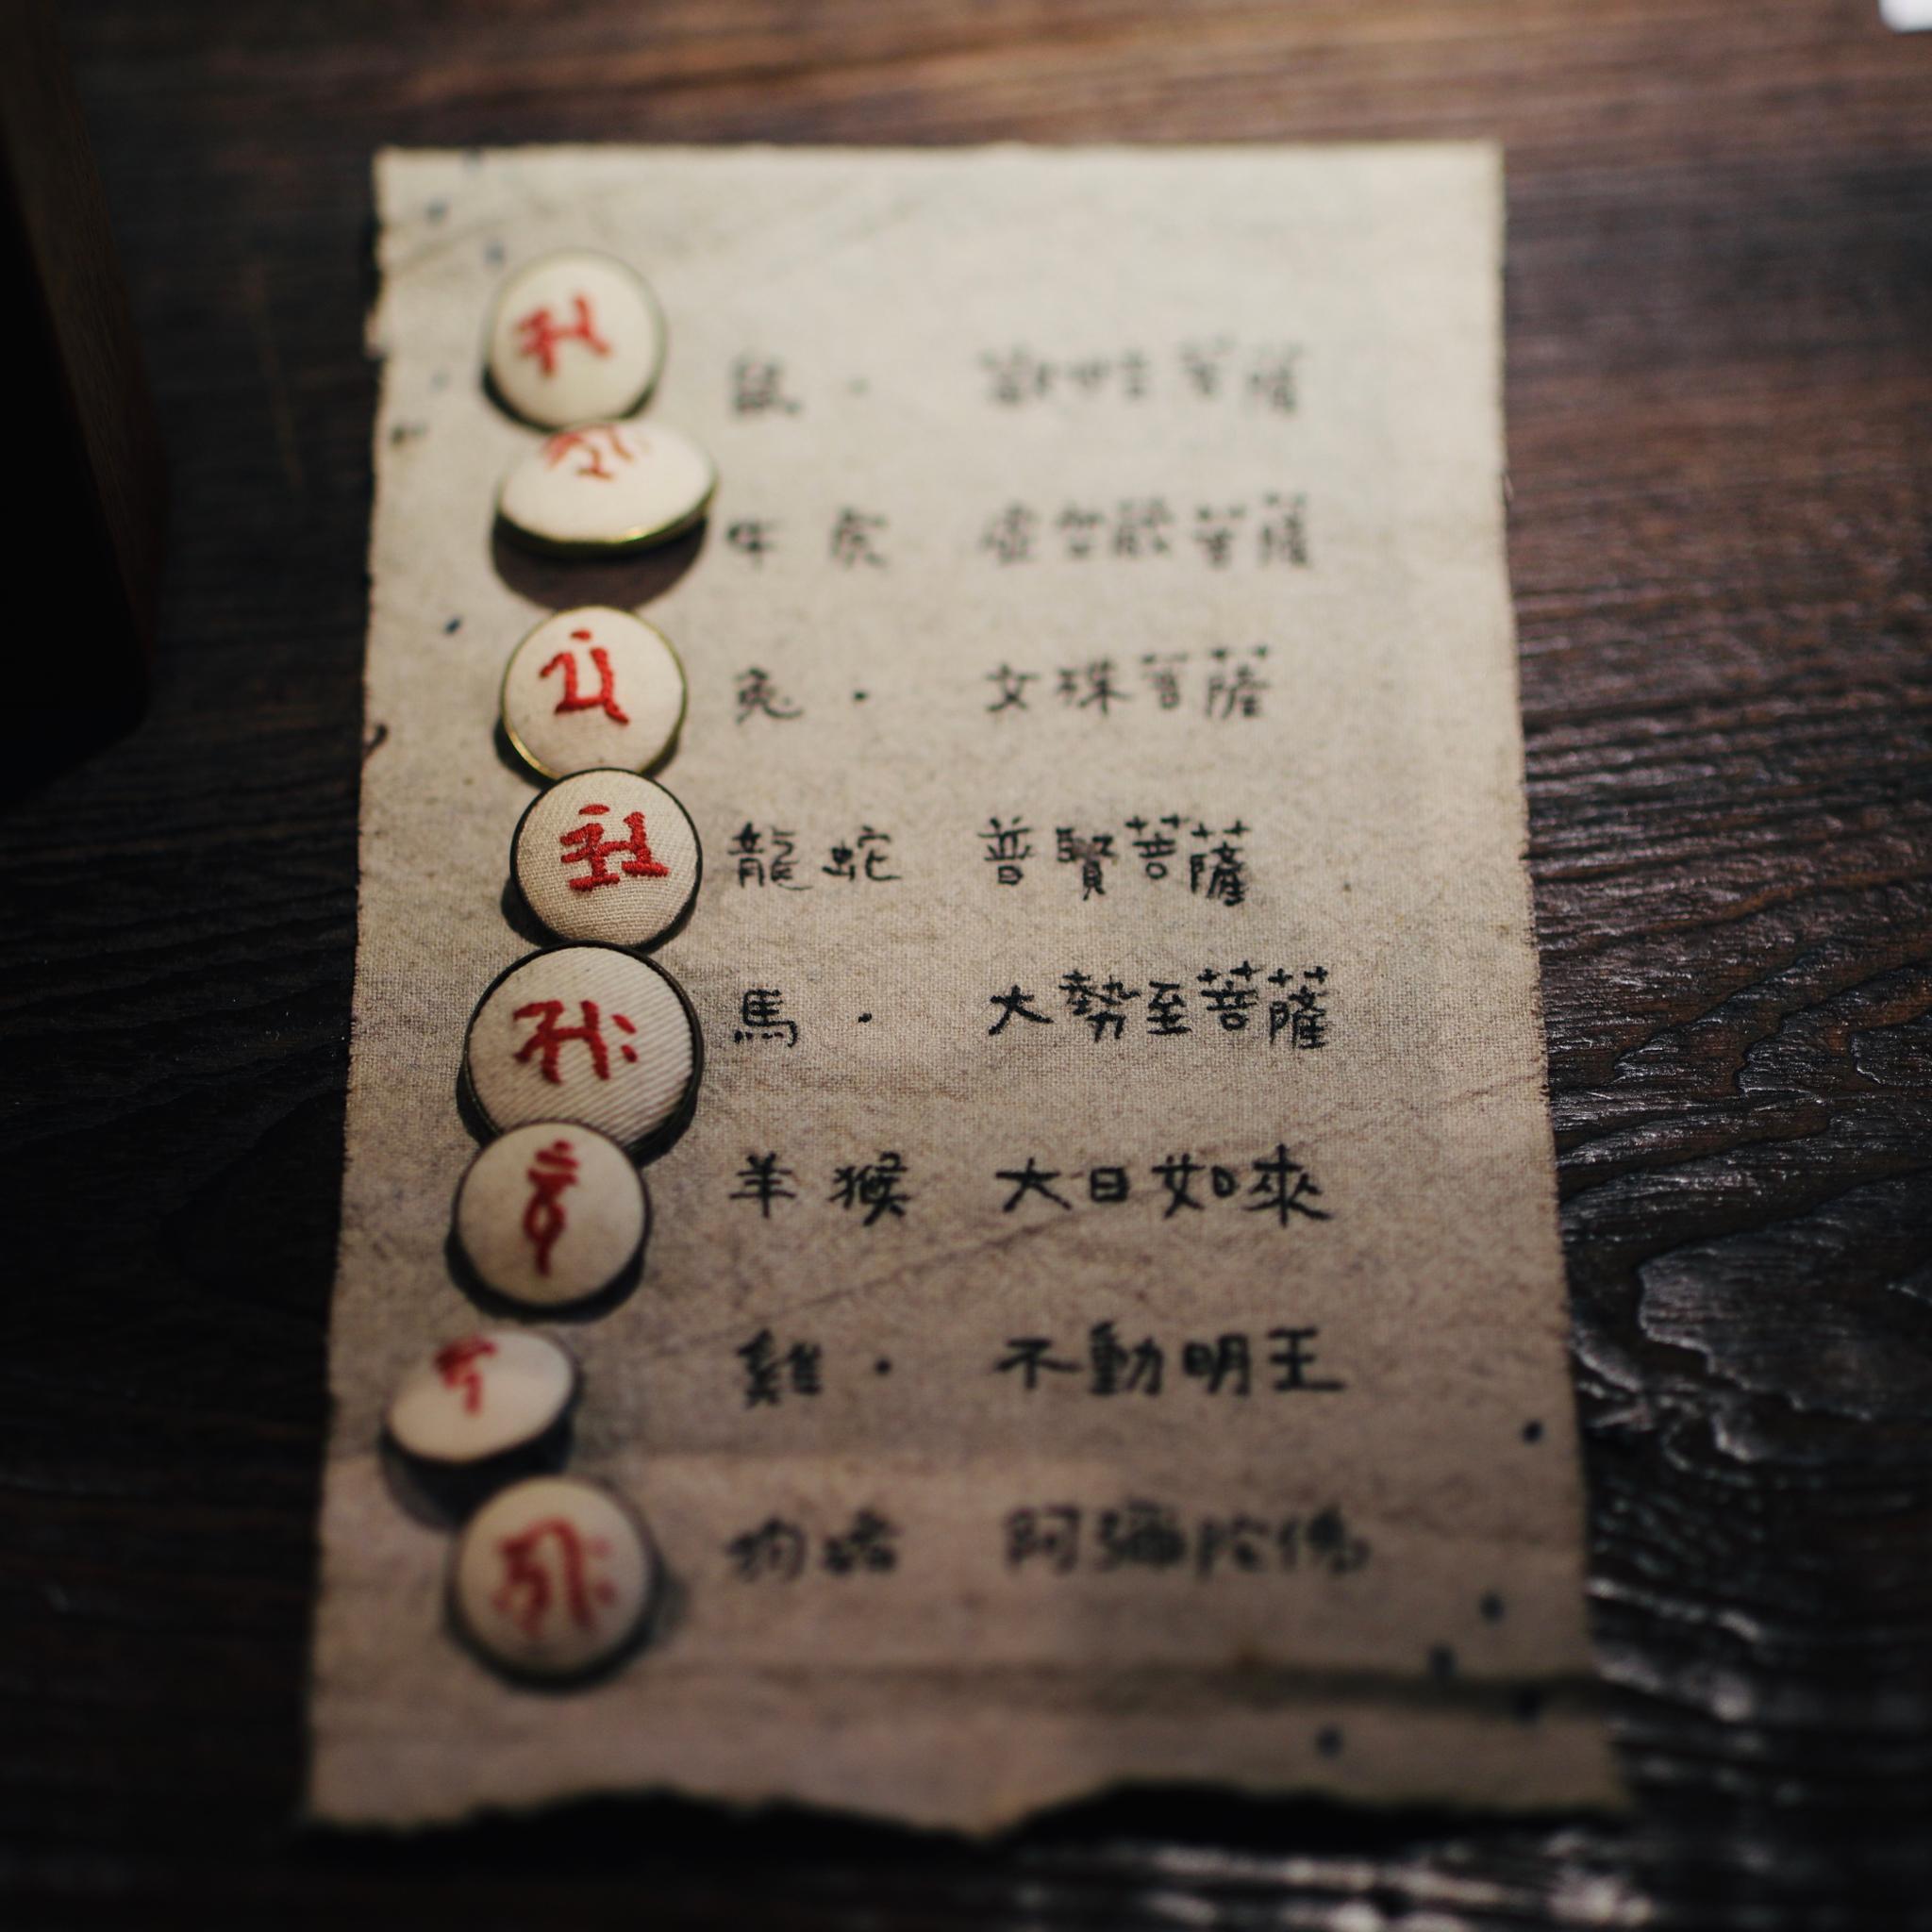 鼠・ 觀世音菩薩
牛虎 虛空藏菩薩
兔・ 文殊菩薩
龍蛇 普賢菩薩
馬・ 大勢至菩薩
羊猴 大日如來
雞・ 不動明王
狗豬 阿彌陀佛